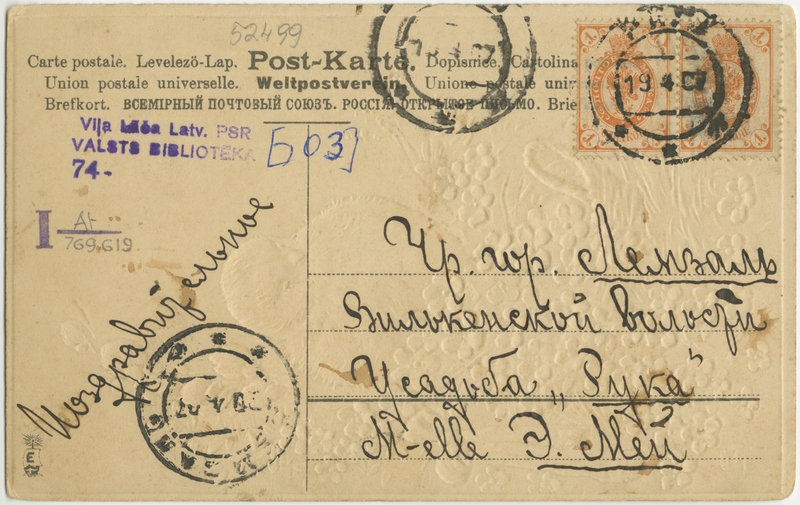 52499
Carte postale. Levelezö-Lap. Post-Karte. Dopisnice. Cartolina
Union postale universelle. Weltpostverein. Unione postale univ
Brefkort. ВСЕМІРНЫЙ ПОЧТОВЫЙ СОЮЗЪ. РОССІЯ. ОТКРЫТОЕ ПИСЬМО. Brie
18 4 07
19 4 07
1 1
1 1
Viļa Lāča Latv. PSR
VALSTS BIBLIOTĒKA
74-
[Б03]
I At
769.619.
Поздравительное
Чр. гор. Лемзаль
Вилькенской волости
Усадьба „Рука"
M-elle Э. Мей
E